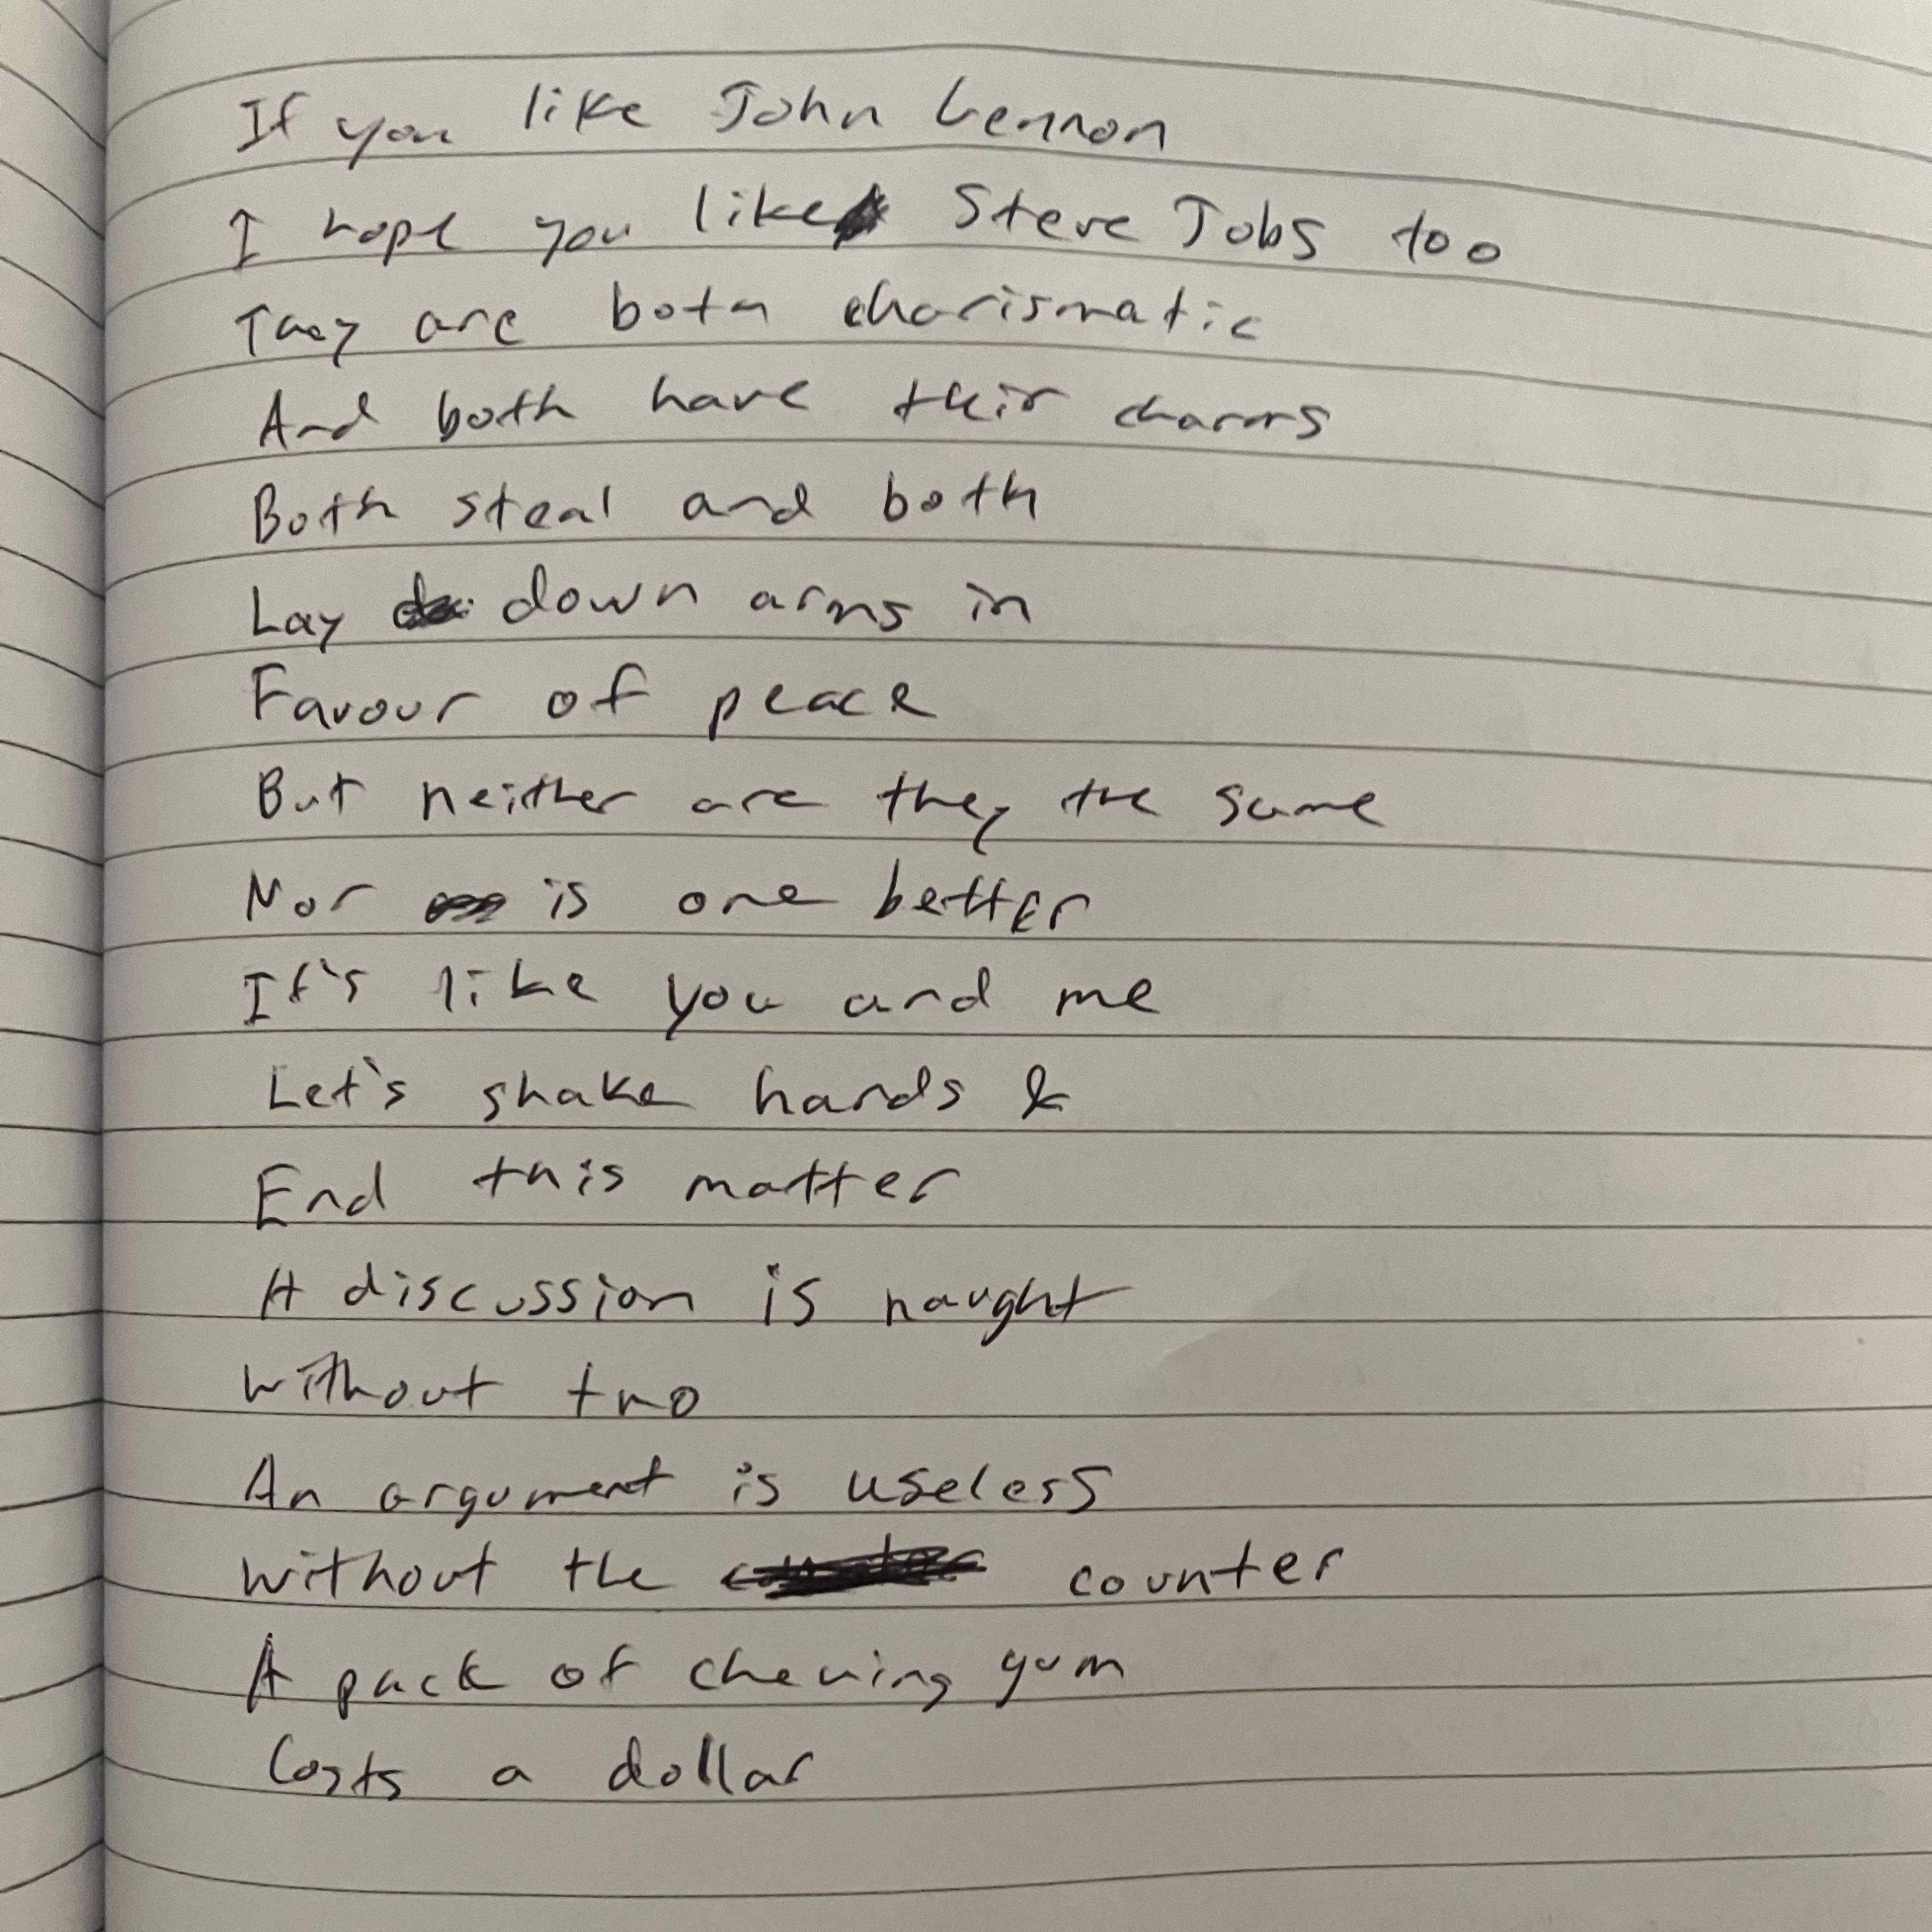 If you like John Lennon
I hope you like Steve Jobs too
They are both charismatic
And both have their charms
Both steal and both
Lay down arms in
Favour of peace
But neither are they the same
Nor is one better
It's like you and me
Let's shake hands &
End this matter
A discussion is naught
without two
An argument is useless
without the counter
A pack of chewing gum
Costs a dollar